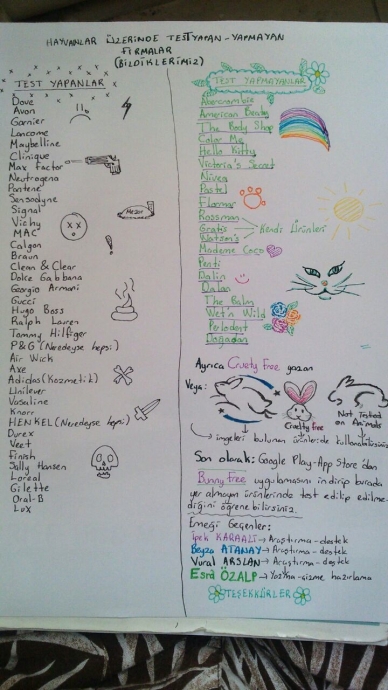 HAYVANLAR ÜZERİNDE TEST YAPAN - YAPMAYAN
FİRMALAR
(BİLDİKLERİMİZ)
TEST YAPANLAR
Dove
Avon
Garnier
Lancome
Maybelline
Clinique
Max factor
Neutrogena
Pantene
Sensodyne
Signal
Vichy
MAC
Calgon
Braun
Clean & Clear
Dolce Gabbana
Georgio Armani
Gucci
Hugo Boss
Ralph Lauren
Tommy Hilfiger
P&G (Neredeyse hepsi)
Air Wick
Axe
Adidas (Kozmetik)
Unilever
Vaseline
Knorr
HENKEL (Neredeyse hepsi)
Durex
Veet
Finish
Sally Hansen
Loreal
Gilette
Oral-B
Lux
TEST YAPMAYANLAR
Abercrombie
American Beauty
The Body Shop
Color Me
Hello Kitty
Victoria's Secret
Nivea
Pastel
Flormar
Rossman
Gratis
Watson's
Kendi Ürünleri
Madame Coco
Penti
Dalin
Dalan
The Balm
Wet'n Wild
Perlodent
Doğadan
Ayrıca Cruelty Free yazan
Veya:
Cruelty free
Not Tested
on Animals
imgeleri bulunan ürünlerde kullanabilirsiniz.
Son olarak: Google Play-App Store'dan
Bunny Free uygulamasını indirip burada
yer almayan ürünlerinde test edilip edilme-
diğini öğrenebilirsiniz.
Emeği Geçenler:
İpek KARAALİ → Araştırma - destek
Beyza ATANAY → Araştırma - destek
Vural ARSLAN → Araştırma - destek
Esra ÖZALP → Yazma - çizme hazırlama
TEŞEKKÜRLER